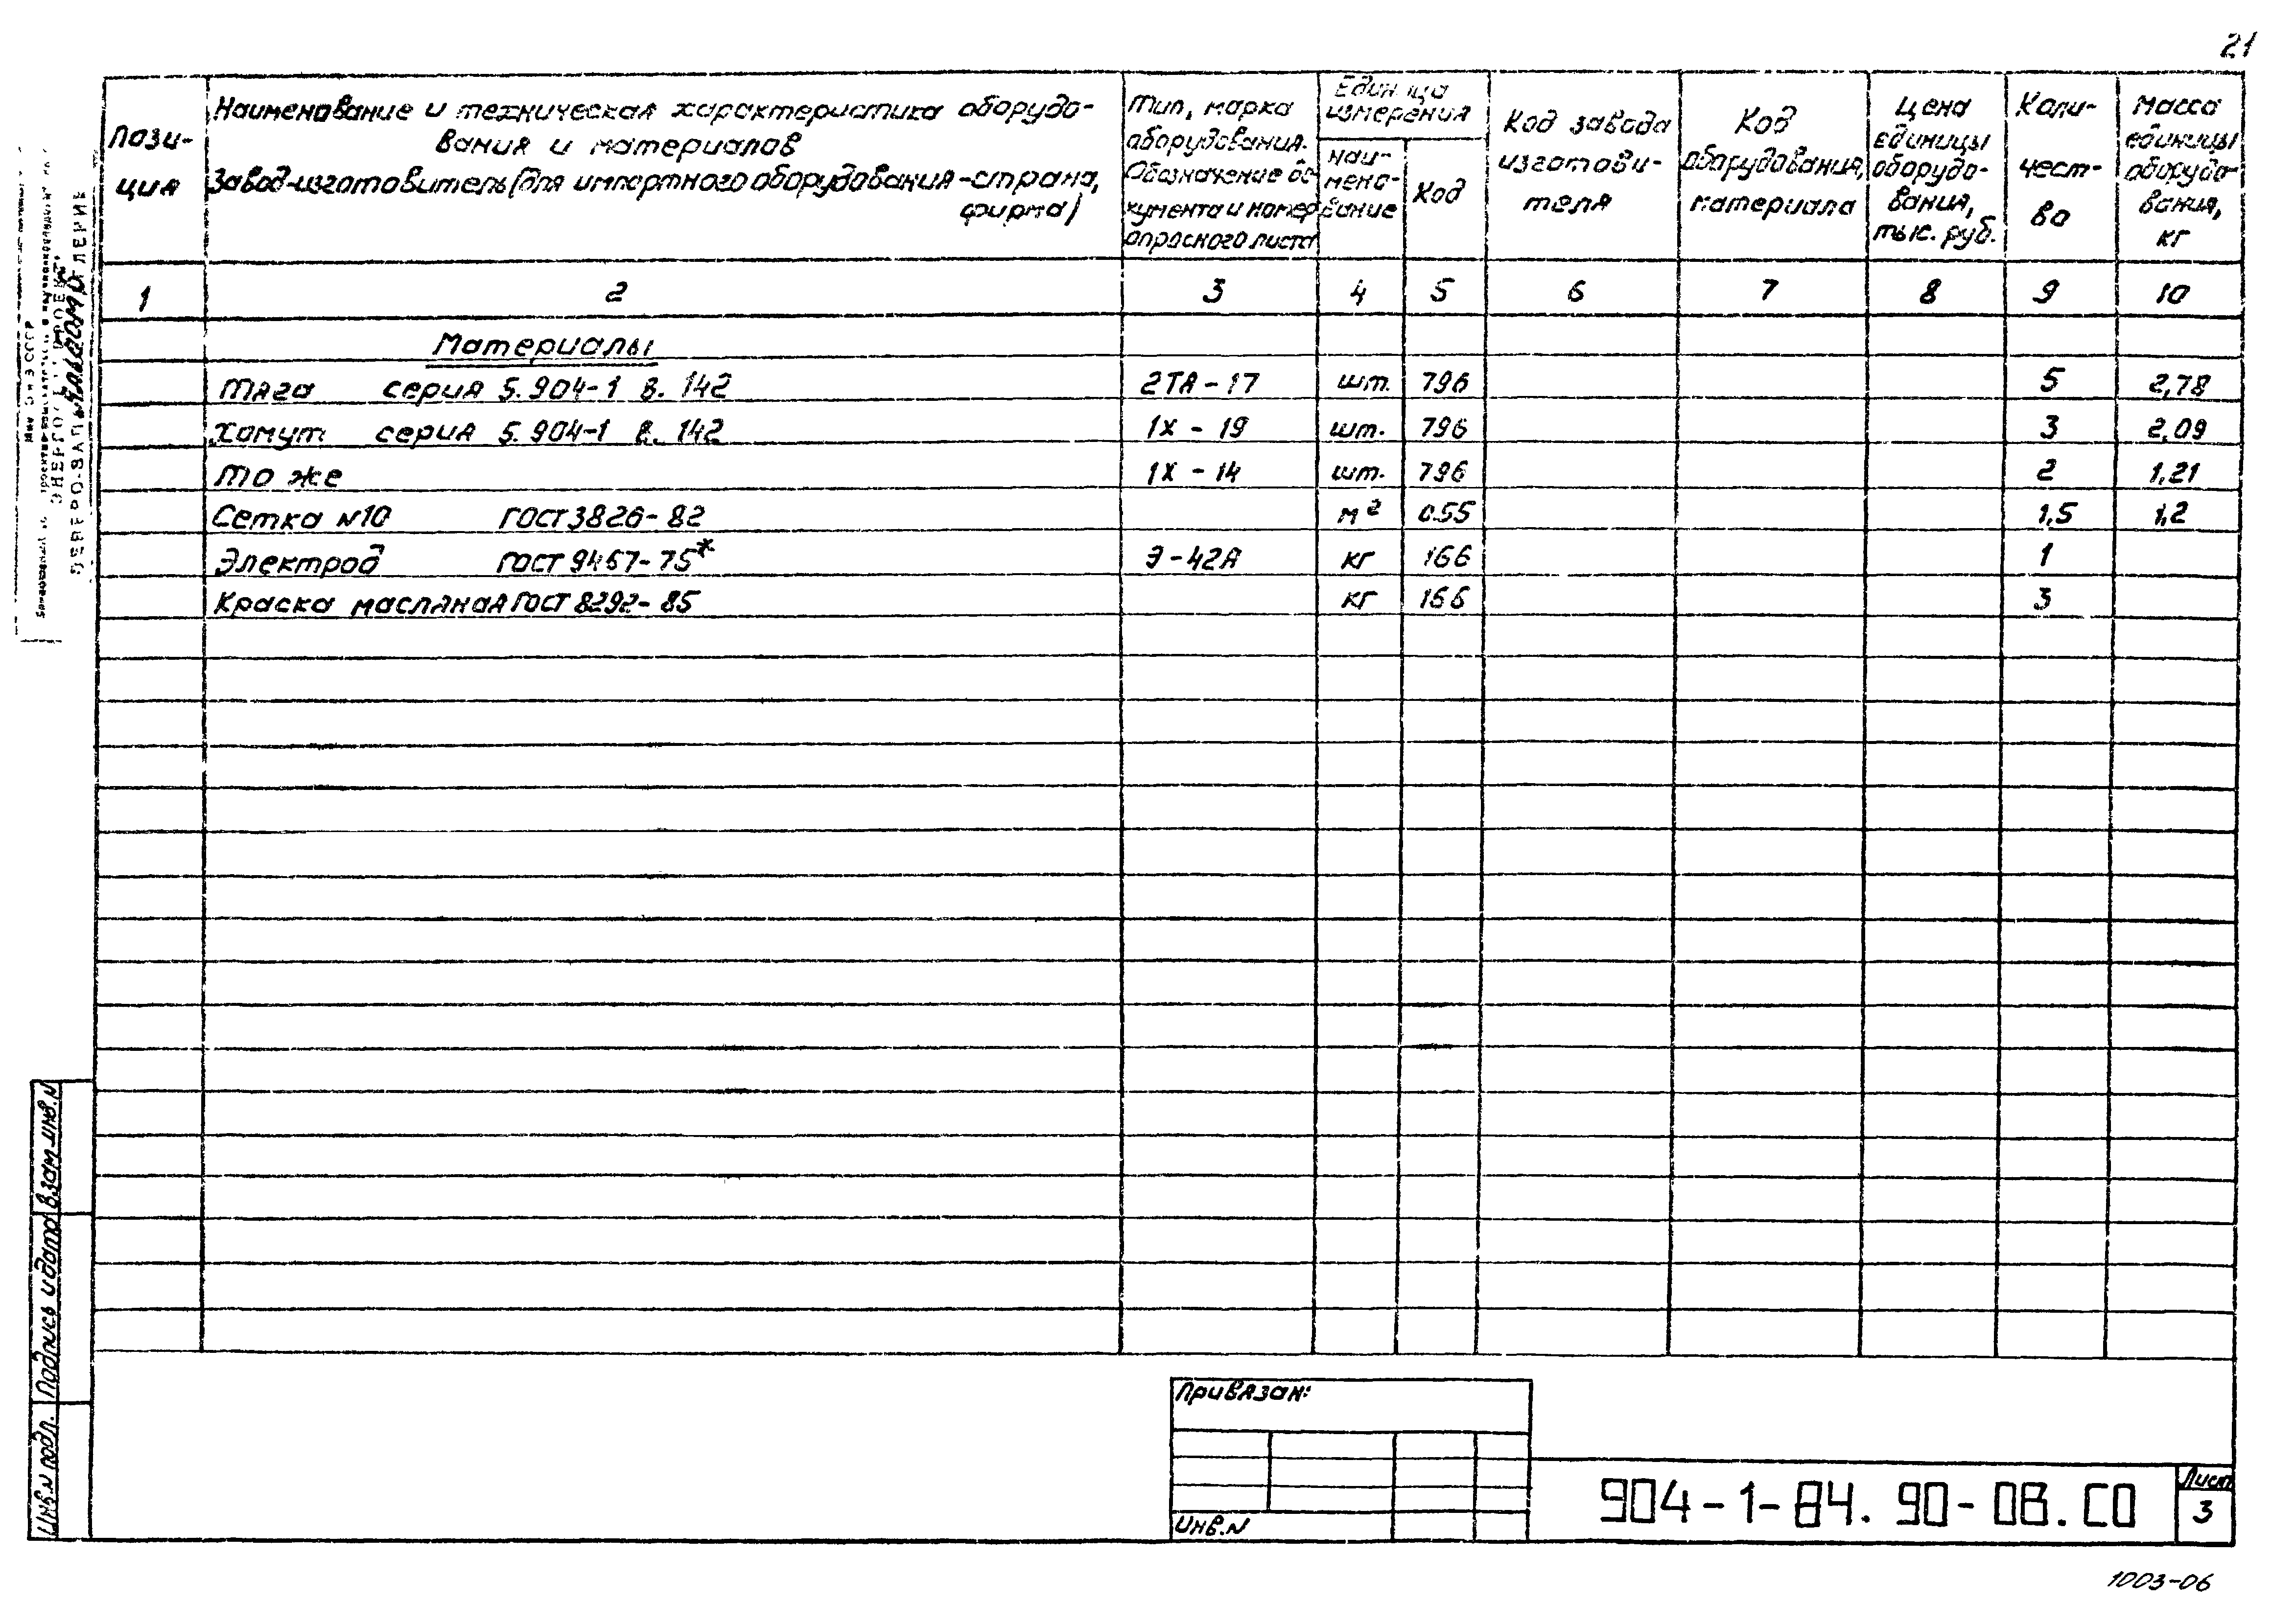 21
Пози-
ция
Наименование и техническая характеристика оборудо-
вания и материалов
Завод-изготовитель (для импортного оборудования-страна,
фирма)
Тип, марка
оборудования.
Обозначение до-
кумента и номер
опросного листа
Единица
измерения
наи-
мено-
вание
Код
Код завода
изготови-
теля
Код
оборудования,
материала
Цена
единицы
оборудо-
вания,
тыс. руб.
Коли-
чест-
во
Масса
единицы
оборудо-
вания,
кг
1 2 3 4 5 6 7 8 9 10
Материалы
Тяга серия 5.904-1 в. 142 2ТА-17 шт. 796 5 2,78
Хомут серия 5.904-1 в. 142 1Х-19 шт. 796 3 2,09
То же 1Х-14 шт. 796 2 1,21
Сетка N10 ГОСТ 3826-82 м² 055 1,5 1,2
Электрод ГОСТ 9467-75* Э-42А кг 166 1
Краска масляная ГОСТ 8292-85 кг 166 3
Взам. инв. N
Подпись и дата
Инв. N подл.
Привязан:
Инв. N
904-1-84.90-ОВ.СО
Лист
3
1003-06